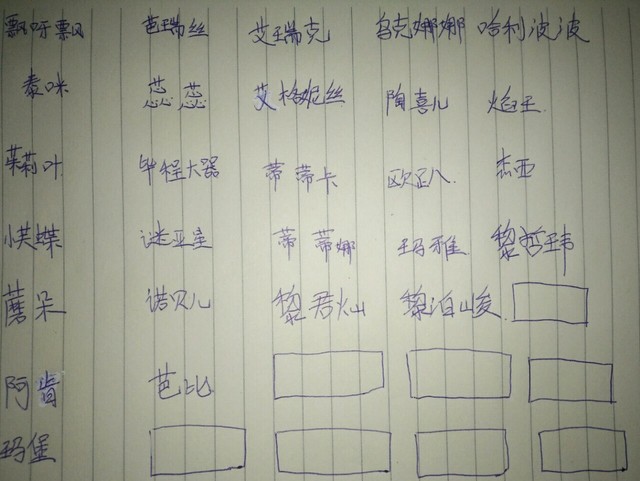 飘呀飘 芭瑞丝 艾瑞克 乌克娜娜 哈利波波
泰咪 蕊蕊 艾格妮丝 陶喜儿 焰王
茉莉叶 钟程大器 蒂蒂卡 欧趴 杰西
小蝶 谜亚星 蒂蒂娜 玛雅 黎哲玮
蘑呆 诺贝儿 黎君灿 黎泊峻
阿肯 芭比
玛堡